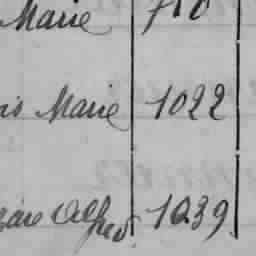 Marie 710
Marie 1022
Alfred 1039